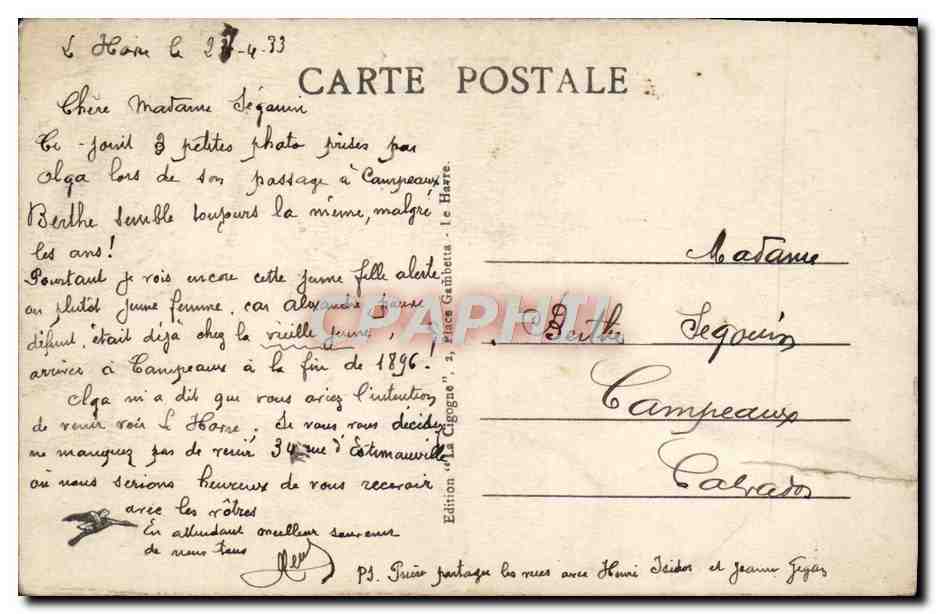 Le Havre le 27-4-33
CARTE POSTALE
Chère Madame Séguin
Ci-joint 3 petites photo prises par
Olga lors de son passage à Campeaux
Berthe semble toujours la même, malgré
les ans!
Pourtant je vois encore cette jeune fille alerte
ou plutôt jeune femme, car Alexandre pauvre
défunt, était déjà chez la vieille
arrivés à Campeaux à la fin de 1896!
Olga m'a dit que vous aviez l'intention
de venir voir Le Havre. Si vous vous décidez
ne manquez pas de venir 34 rue d'Estimauville
où nous serions heureux de vous recevoir
avec les vôtres
En attendant meilleur souvenir
de nous tous
PS. Prière partager les vues avec Henri Isidor et Jeanne
Edition "La Cigogne", 2, Place Gambetta - Le Havre.
Madame
Berthe Seguin
Campeaux
Calvados
CPAPHIL